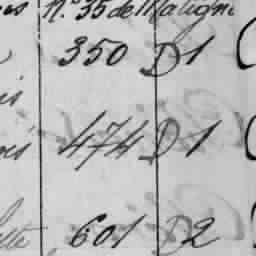 n.º 35 de Matign
350 D1
474 D1
601 D2